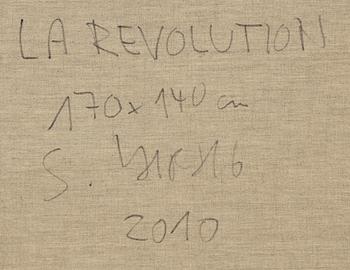 LA REVOLUTION
170 x 140 cm
S.
2010